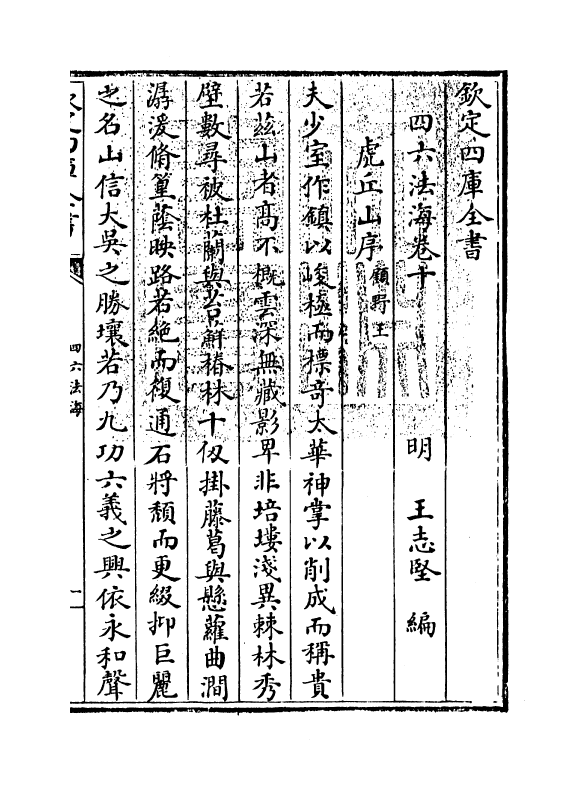 欽定四庫全書
四六法海卷十
明 王志堅 編
虎丘山序 顧野王
夫少室作鎮以峻極而標奇太華神掌以削成而稱貴
若兹山者髙不概雲深無藏影卑非培塿淺異棘林秀
壁數尋被杜蘭與苔蘚椿林十仭掛藤葛與懸蘿曲澗
潺湲脩篁蔭映路若絶而復通石將頽而更綴抑巨麗
之名山信大吳之勝壤若乃九功六義之興依永和聲
四六法海
一